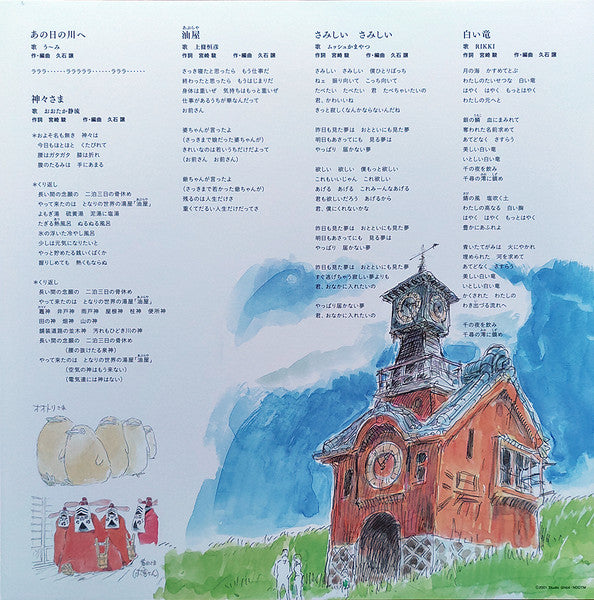 あの日の川へ
歌 う〜み
作詞 宮崎 駿 作・編曲 久石 譲
ラララ‥‥‥ララララララ‥‥‥ラララ‥‥‥
神々さま
歌 おおたか静流
作詞 宮崎 駿 作・編曲 久石 譲
＊およそ名も無き 神々は
今日もほとほと くたびれて
腰はガタガタ 膝は折れ
腹のたるみは 手にあまる
＊くり返し
長い間の念願の 二泊三日の骨休め
やって来たのは となりの世界の湯屋「油屋」
よもぎ湯 硫黄湯 泥湯に塩湯
たぎる熱風呂 ぬるぬる風呂
氷の浮いた冷やし風呂
少しは元気になりたいと
やっと貯めたる銭いくばくか
握りしめても 熱くもならぬ
＊くり返し
長い間の念願の 二泊三日の骨休め
やって来たのは となりの世界の湯屋「油屋」
竈神 井戸神 雨戸神 屋根神 柱神 便所神
田の神 畑神 山の神
舗装道路の並木神 汚れもひどき川の神
長い間の念願の 二泊三日の骨休め
(腰の抜けたる泉神)
やって来たのは となりの世界の湯屋「油屋」
(空気の神はもう来ない)
(電気達には神はない)
油屋
あぶらや
歌 上條恒彦
作詞 宮崎 駿 作・編曲 久石 譲
さっき寝たと思ったら もう仕事だ
終わったと思ったら もうはじまりだ
身体は重いぜ 気持ちはもっと重いぜ
仕事があるうちが華なんだって
お前さん
婆ちゃんが言ったよ
(さっきまで娘だった婆ちゃんが)
きれいなのは若いうちだけだよって
(お前さん お前さん)
爺ちゃんが言ったよ
(さっきまで若かった爺ちゃんが)
残るのは人生だけさ
重くてだるい人生だけだってさ
さみしい さみしい
歌 ムッシュかまやつ
作詞 宮崎 駿 作・編曲 久石 譲
さみしい さみしい 僕ひとりぼっち
ねぇ 振り向いて こっち向いて
たべたい たべたい 君 たべちゃいたいの
君、かわいいね
きっと寂しくなんかならないんだね
昨日も見た夢は おとといにも見た夢
明日もあさってにも 見る夢は
やっぱり 届かない夢
欲しい 欲しい 僕もっと欲しい
これもいいじゃん これ欲しい
あげる あげる これみ〜んなあげる
君も欲しいだろう あげるから
君、僕にくれないかな
昨日も見た夢は おとといにも見た夢
明日もあさってにも 見る夢は
やっぱり 届かない夢
昨日も見た夢は おとといにも見た夢
すぐ逃げちゃう寂しい夢よりも
君、おなかに入れたいの
やっぱり届かない夢
君、おなかに入れたいの
白い竜
歌 RIKKI
作詞 宮崎 駿 作・編曲 久石 譲
月の海 かすめてとぶ
わたしのたいせつな 白い竜
はやく はやく もっとはやく
わたしの元へと
銀の鱗 血にまみれて
奪われた名前求めて
あてどなく さすらう
美しい白い竜
いとしい白い竜
千の夜を飲み
千尋の澪に鎮め
錆の風 塩吹く土
わたしの高なる 白い胸
はやく はやく もっとはやく
豊かにあふれよ
青いたてがみは 火にやかれ
埋められた 河を求めて
あてどなく さすらう
美しい白い竜
いとしい白い竜
かくされた わたしの
わき出づる流れへ
千の夜を飲み
千尋の澪に鎮め
オオトリさま
©2001 Studio Ghibli・NDDTM